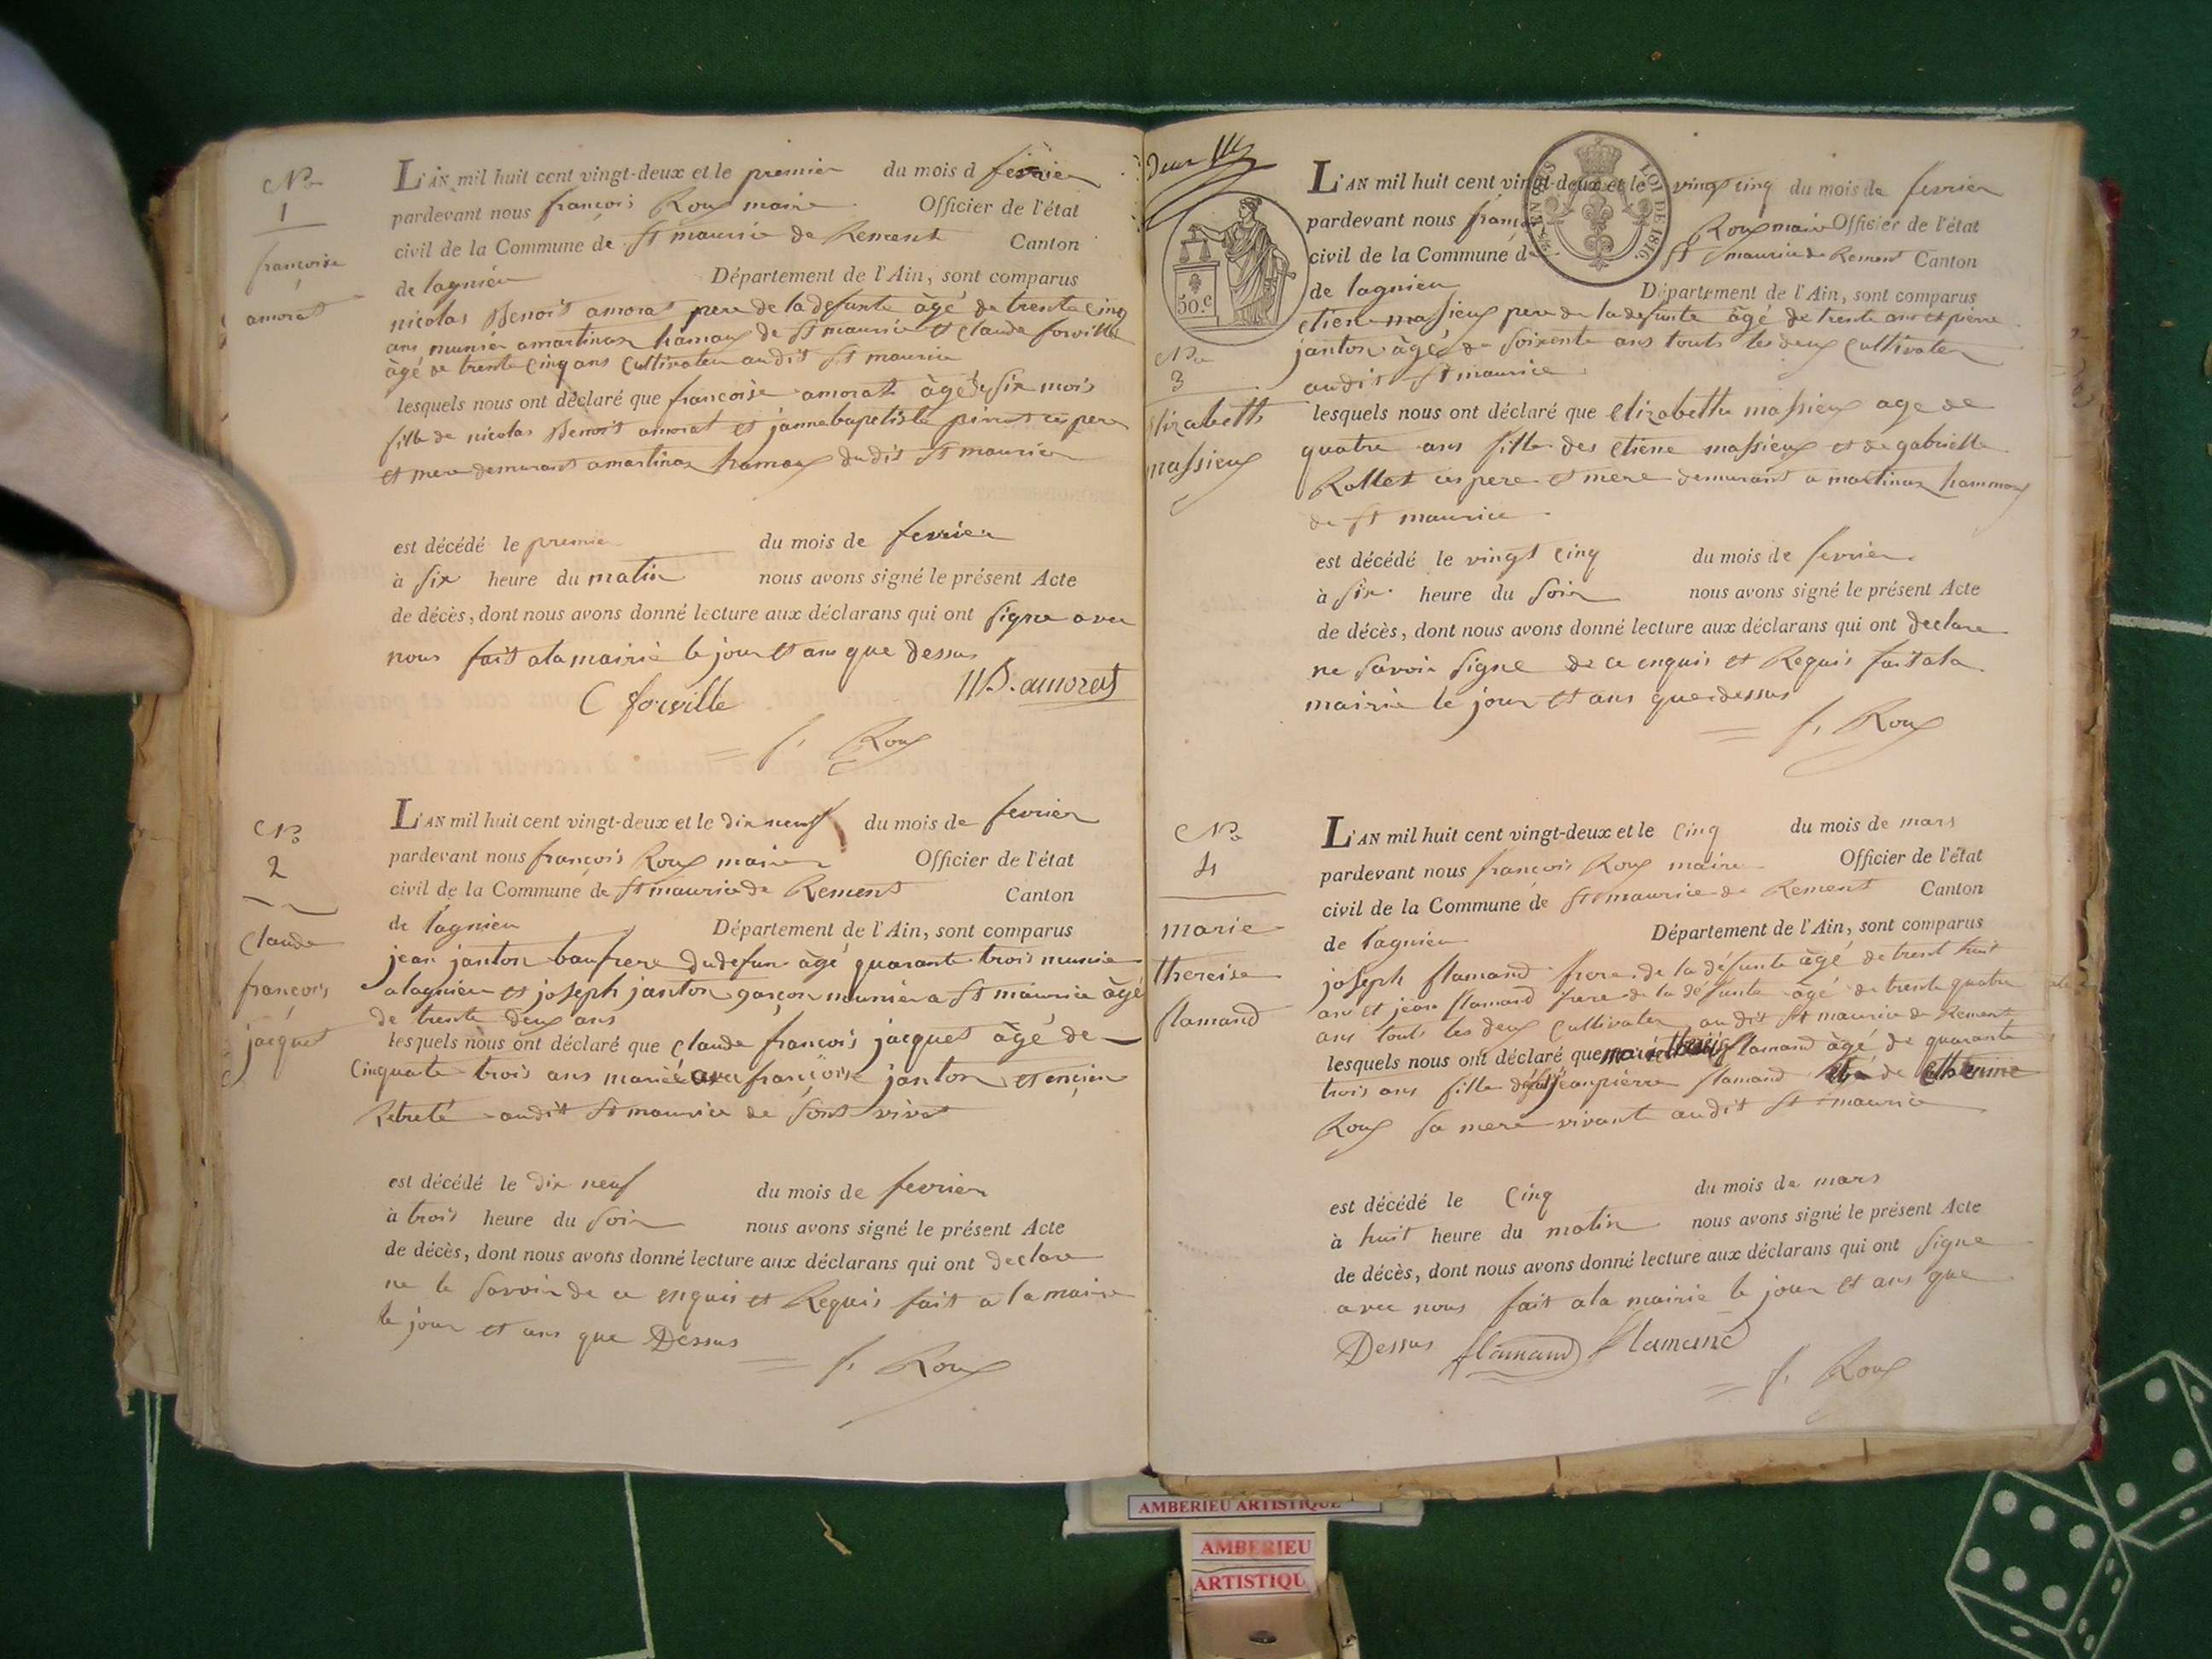 No
1
françoise
amorat
L'AN mil huit cent vingt-deux et le premier du mois d fevrier
pardevant nous françois Roux maire Officier de l'état
civil de la Commune de St maurice de Remens Canton
de lagnieu Département de l'Ain, sont comparus
nicolas Benoit amorat pere de la defunte àgé de trente cinq
ans munier a martinaz hamaux de St maurice et Claude forville
àgé de trente cinq ans Cultivateur audit St maurice
lesquels nous ont déclaré que francoise amorat àgé de six mois
fille de nicolas Benoit amorat et janne baptiste ces pere
et mere demurant a martinaz hamaux dudit St maurice
est décédé le premier du mois de fevrier
à six heure du matin nous avons signé le présent Acte
de décès, dont nous avons donné lecture aux déclarans qui ont signe avec
nous fait a la mairie le jour et ans que dessus
C forville NB. amorat
f, Roux
No
2
Claude
françois
jacquet
L'AN mil huit cent vingt-deux et le dix neuf du mois de fevrier
pardevant nous françois Roux maire Officier de l'état
civil de la Commune de St maurice de Remens Canton
de lagnieu Département de l'Ain, sont comparus
jean janton baufrere du defun àgé quarante trois munier
a lagnieu et joseph janton garçon meunier a St maurice àgé
de trente deux ans
lesquels nous ont déclaré que Claude françois jacquet àgé de
Cinquate trois ans marié avec françoise janton et encien
Retreté audit St maurice de sont vivat
est décédé le dix neuf du mois de fevrier
à trois heure du soir nous avons signé le présent Acte
de décès, dont nous avons donné lecture aux déclarans qui ont declare
ne le savoir de ce enquis et Requis fait a la mairie
le jour et ans que Dessus
f, Roux
LOI DE 1816.
50.c
No
3
Elizabeth
massieux
L'AN mil huit cent vingt-deux et le vingt cinq du mois de fevrier
pardevant nous franc Roux maire Officier de l'état
civil de la Commune de St maurice de Remens Canton
de lagnieu Département de l'Ain, sont comparus
etiene massieux pere de la defunte àgé de trente ans et pierre
janton àgé de soixente ans touts les deux Cultivater
audit St maurice
lesquels nous ont déclaré que elizabethe massieux age de
quatre ans fille des etiene massieux et de gabrielle
Rollet ces pere et mere demurant a martinaz hammaux
de St maurice
est décédé le vingt cinq du mois de fevrier
à six heure du soir nous avons signé le présent Acte
de décès, dont nous avons donné lecture aux déclarans qui ont declare
ne savoir signe de ce enquis et Requis fait a la
mairie le jour et ans que dessus
f, Roux
No
4
marie
thereise
flamand
L'AN mil huit cent vingt-deux et le Cinq du mois de mars
pardevant nous françois Roux maire Officier de l'état
civil de la Commune de St maurice de Remens Canton
de lagnieu Département de l'Ain, sont comparus
joseph flamand frere de la défunte àgé de trent huit
ans et jean flamand frere de la défunte àgé de trente quatre
ans touts les deux Cultivater audit St maurice de Remens
lesquels nous ont déclaré que flamand àgé de quarante
trois ans fille jeanpierre flamand de Catherine
Roux sa mere vivante audit St maurice
est décédé le Cinq du mois de mars
à huit heure du matin nous avons signé le présent Acte
de décès, dont nous avons donné lecture aux déclarans qui ont signe
avec nous fait a la mairie le jour et ans que
Dessus flamand flamand
f, Roux
AMBERIEU ARTISTIQUE
AMBERIEU
ARTISTIQU